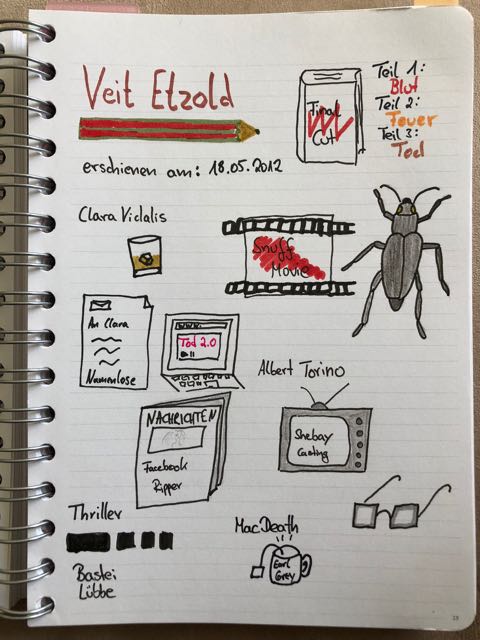 Veit Etzold
erschienen am: 18.05.2012
Final
Cut
Teil 1:
Blut
Teil 2:
Feuer
Teil 3:
Tod
Clara Vidalis
Snuff
Movie
An Clara
Namenlose
WWW.
Tod 2.0
Albert Torino
NACHRICHTEN
Facebook
Ripper
Shebay
Casting
Thriller
Bastei
Lübbe
MacDeath
Earl
Grey